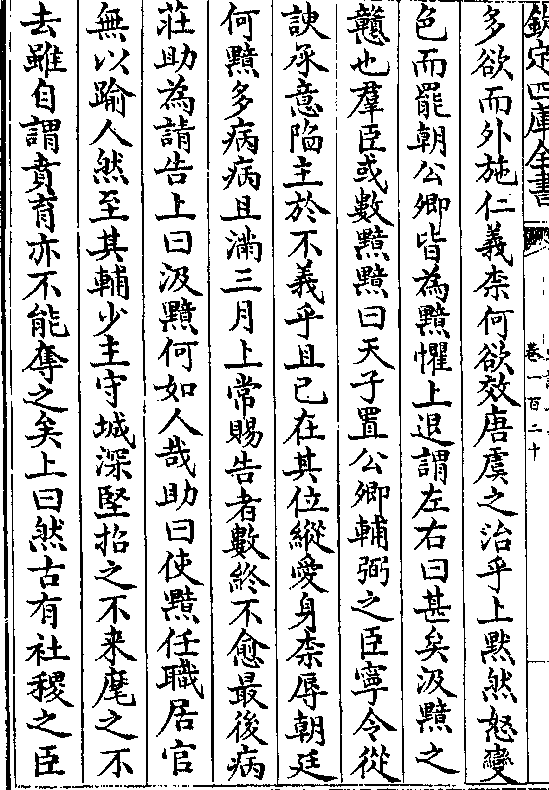 欽定四庫全書
卷一百二十
多欲而外施仁義柰何欲效唐虞之治乎上黙然怒變
色而罷朝公卿皆為黯懼上退謂左右曰甚矣汲黯之
戇也羣臣或數黯黯曰天子置公卿輔弼之臣寧令從
諛承意陷主於不義乎且已在其位縱愛身柰辱朝廷
何黯多病病且滿三月上常賜告者數終不愈最後病
莊助為請告上曰汲黯何如人哉助曰使黯任職居官
無以踰人然至其輔少主守城深堅招之不来麾之不
去雖自謂賁育亦不能奪之矣上曰然古有社稷之臣